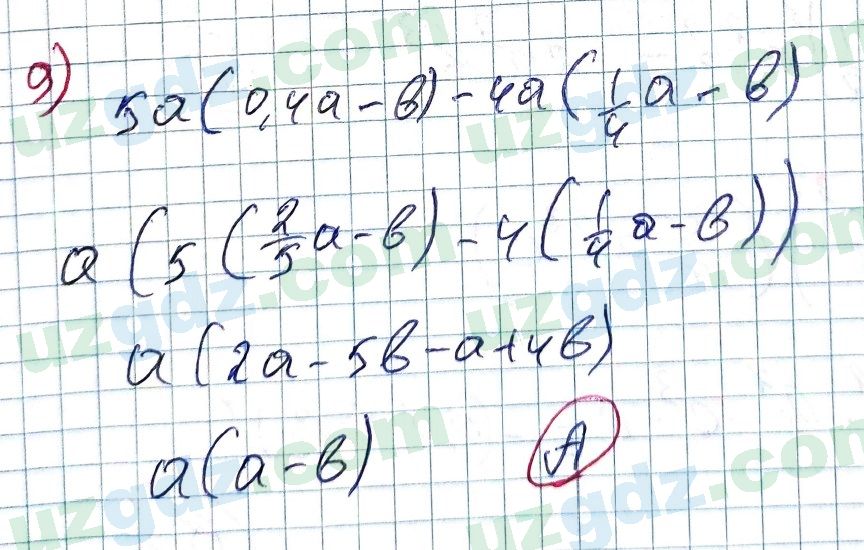 9) 5a(0,4a - b) - 4a(1/4 a - b)
a(5(2/5 a - b) - 4(1/4 a - b))
a(2a - 5b - a + 4b)
a(a - b) A
uzgdz.com